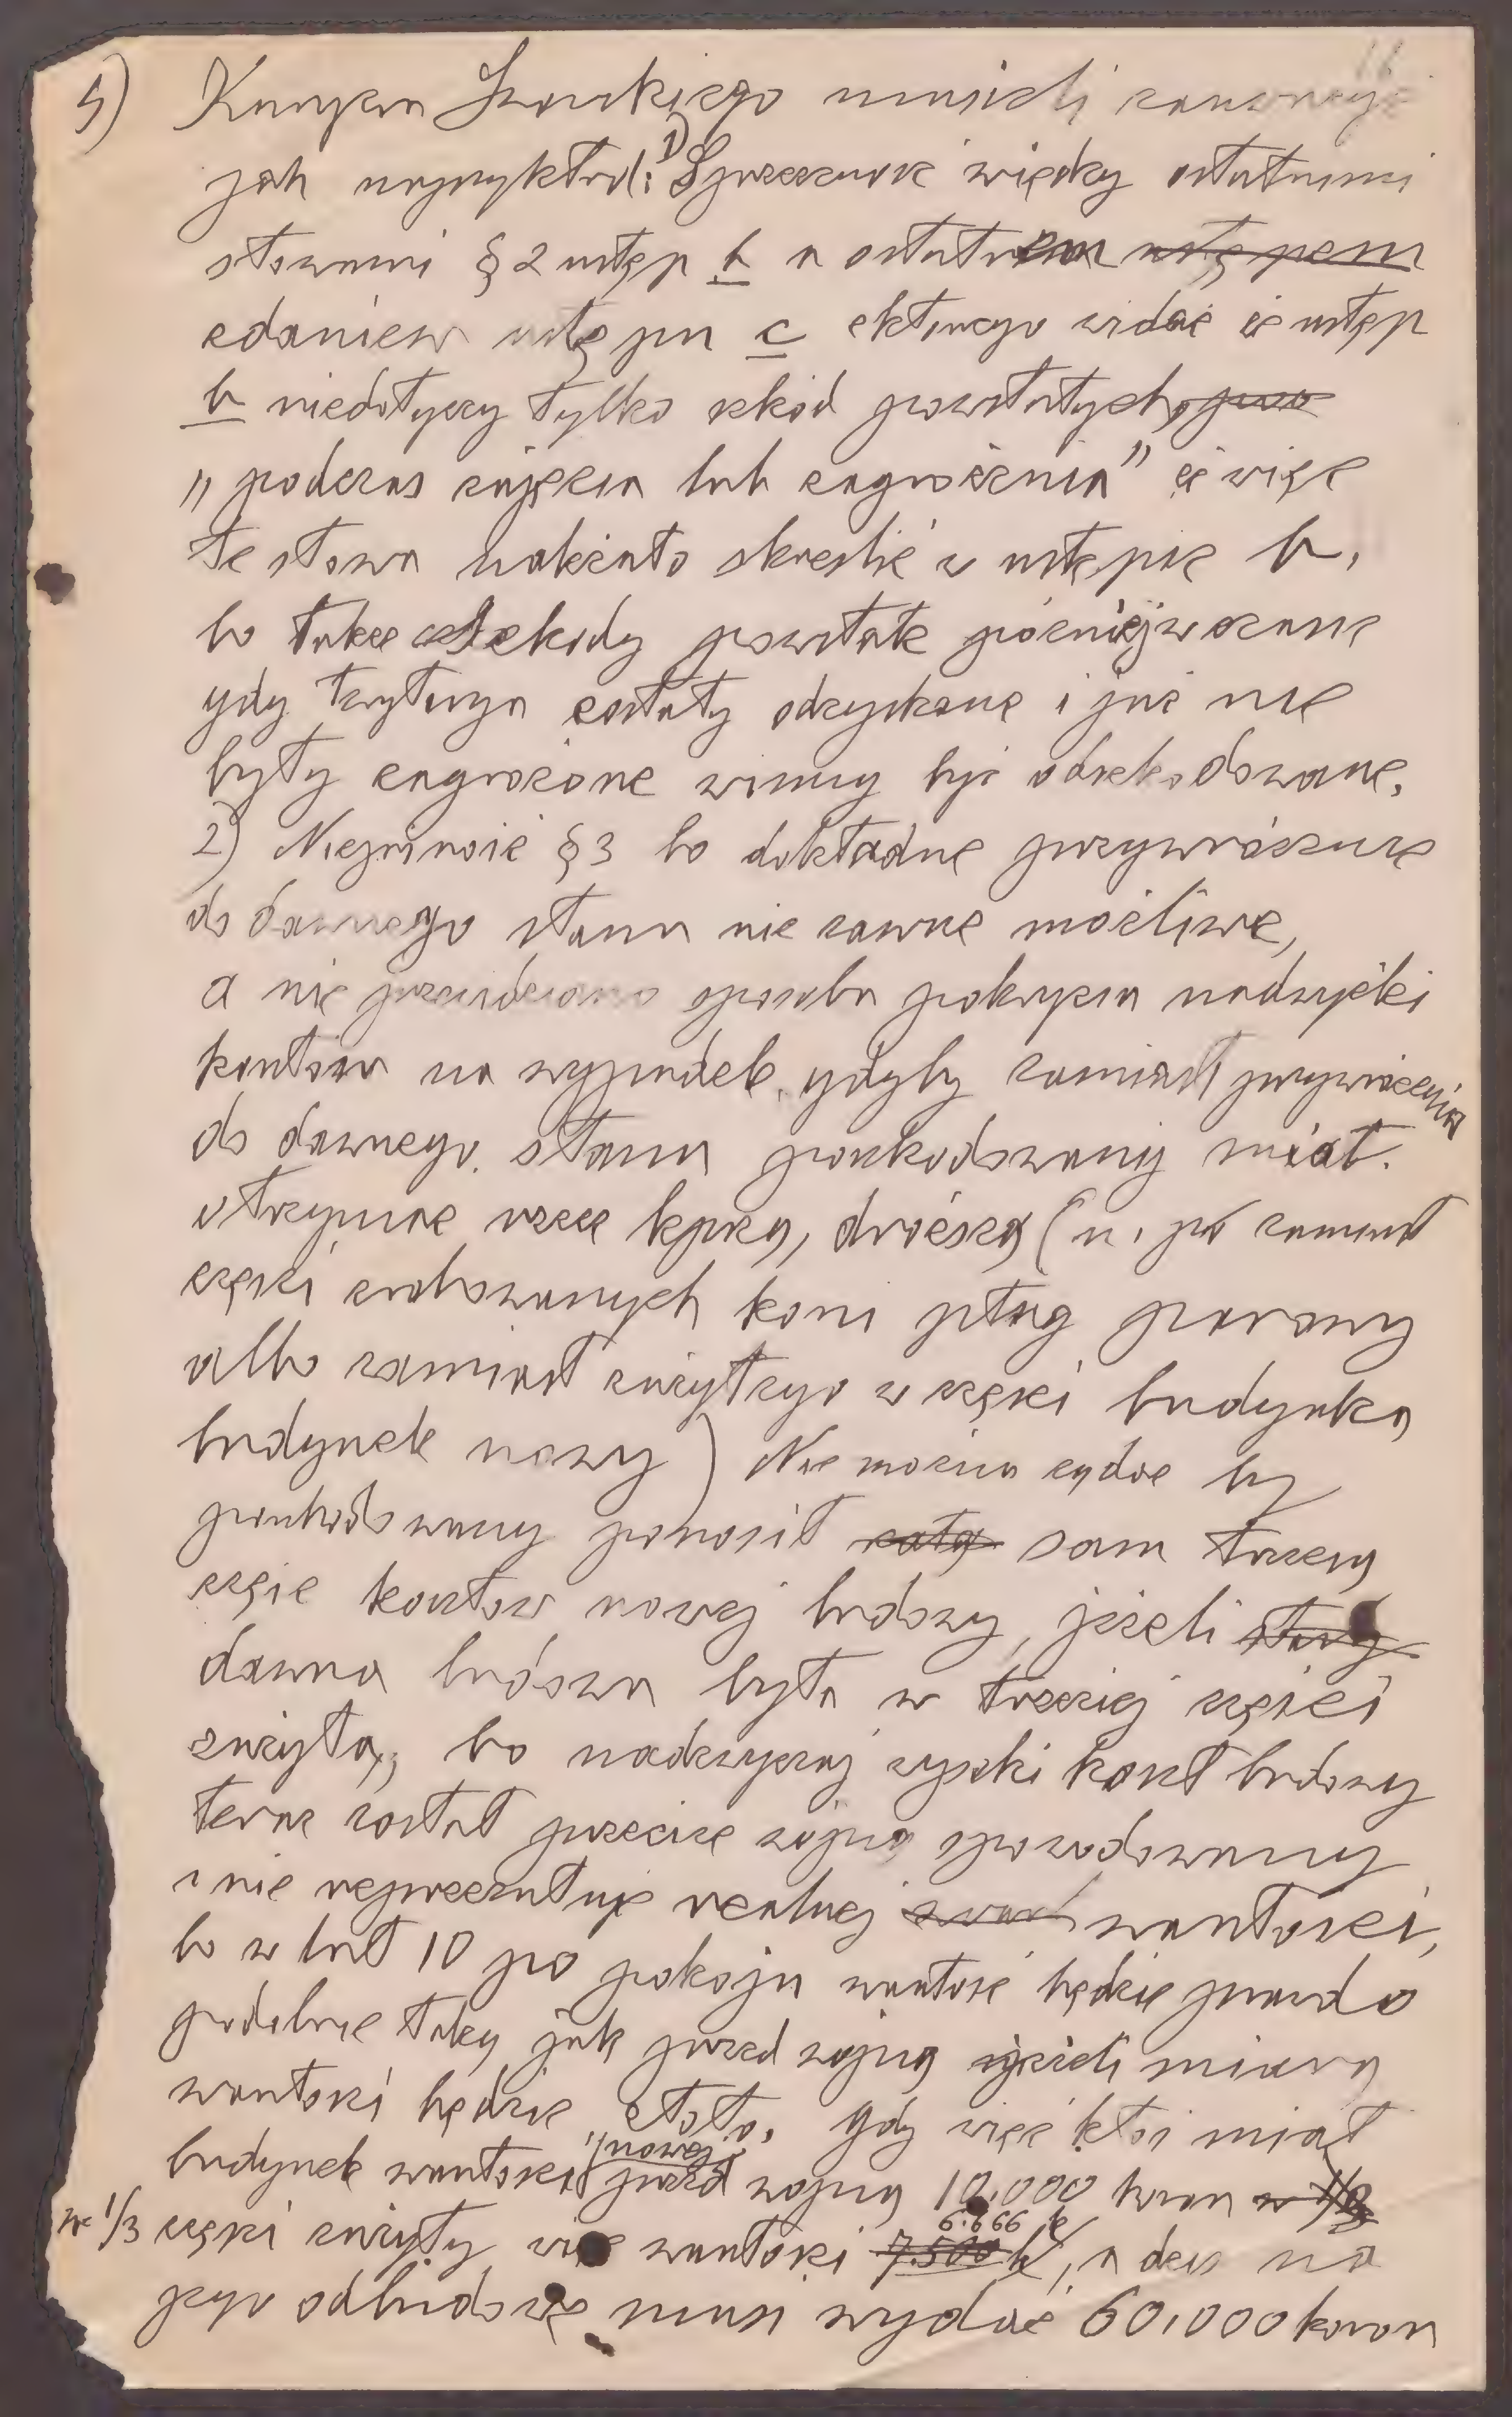 5) musieli zauważyć
jak naprzykład: 1) Sprzeczność między ostatnimi
słowami § 2 ustęp b a ostatniem ustępem
zdaniem ustępu c z którego widać że ustęp
b niedotyczy tylko szkód powstałych
„podczas zajęcia lub zagrożenia" że więc
te słowa należało skreślić w ustępie b,
bo także szkody powstałe później w czasie
gdy terytorya zostały odzyskane i już nie
były zagrożone winny być odszkodowane.
2) Niejasność § 3 bo dokładne przywrócenie
do dawnego stanu nie zawsze możliwe,
a nie przewidziano sposobu pokrycia nadwyżki
kosztów na wypadek, gdyby zamiast przywrócenia
do dawnego stanu poszkodowany miał
otrzymać rzecz lepszą, droższą (n. p. zamiast
części zrabowanych koni pług parowy
albo zamiast zużytego w części budynku
budynek nowy) Nie można żądać by
poszkodowany ponosił całą sam trzecią
część kosztów nowej budowy, jeżeli stary
dawna budowa była w trzeciej części
zużytą, bo nadzwyczaj wysoki koszt budowy
teraz został przecież wojną spowodowany
i nie reprezentuje realnej wartości,
bo w lat 10 po pokoju wartość będzie prawdo
podobnie taką jak przed wojną jeżeli miarą
wartości będzie złoto. Gdy więc ktoś miał
budynek wartości „nowej" przed wojną 10.000 koron w 1/3
w 1/3 części zużyty więc wartości 7.500 k 6.666 k, a dziś na
jego odbudowę musi wydać 60.000 koron